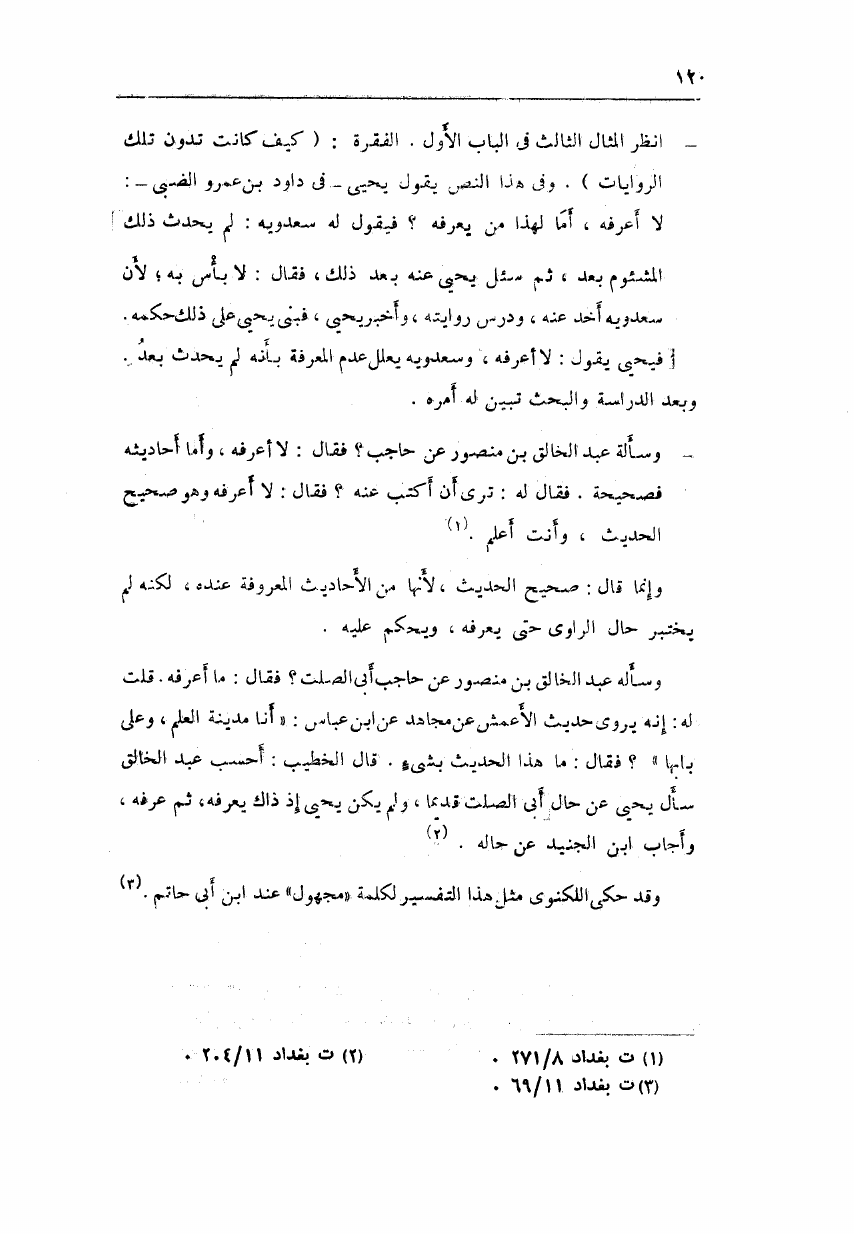 ١٢٠
ـ انظر المثال الثالث فى الباب الأول . الفقرة : ( كيف كانت تدون تلك
الروايات ) . وفى هذا النص يقول يحيى ـ فى داود بن عمرو الضبى ـ :
لا أعرفه ، أما لهذا من يعرفه ؟ فيقول له سعدويه : لم يحدث ذلك
المشئوم بعد ، ثم سئل يحيى عنه بعد ذلك ، فقال : لا بأس به ؛ لأن
سعدويه أخذ عنه ، ودرس روايته ، وأخبر يحيى ، فبنى يحيى على ذلك حكمه .
فيحيى يقول : لا أعرفه ، وسعدويه يعلل عدم المعرفة بأنه لم يحدث بعدُ .
وبعد الدراسة والبحث تبين له أمره .
ـ وسألة عبد الخالق بن منصور عن حاجب ؟ فقال : لا أعرفه ، وأما أحاديثه
فصحيحة . فقال له : ترى أن أكتب عنه ؟ فقال : لا أعرفه وهو صحيح
الحديث ، وأنت أعلم .(١)
وإنما قال : صحيح الحديث ، لأنها من الأحاديث المعروفة عنده ، لكنه لم
يختبر حال الراوى حتى يعرفه ، ويحكم عليه .
وسأله عبد الخالق بن منصور عن حاجب أبى الصلت ؟ فقال : ما أعرفه . قلت
له : إنه يروى حديث الأعمش عن مجاهد عن ابن عباس : « أنا مدينة العلم ، وعلى
بابها » ؟ فقال : ما هذا الحديث بشىء . قال الخطيب : أحسب عبد الخالق
سأل يحيى عن حال أبى الصلت قديما ، ولم يكن يحيى إذ ذاك يعرفه ، ثم عرفه ،
وأجاب ابن الجنيد عن حاله . (٢)
وقد حكى اللكنوى مثل هذا التفسير لكلمة «مجهول» عند ابن أبى حاتم .(٣)
(١) ت بغداد ٢٧١/٨ . (٢) ت بغداد ٢٠٤/١١ .
(٣) ت بغداد ٦٩/١١ .